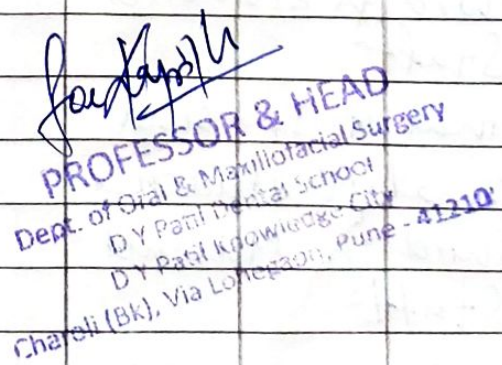 PROFESSOR & HEAD
Dept. of Oral & Maxillofacial Surgery
D Y Patil Dental School
D Y Patil Knowledge City
Charoli (BK), Via Lohegaon, Pune - 41210